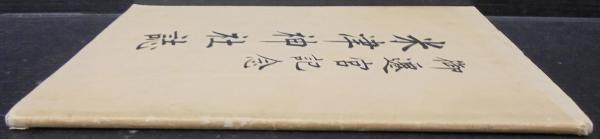 御遷宮記念
米澤神社誌